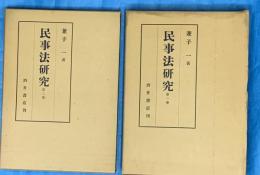 兼子 一 著
民事法研究
第一巻
酒井書店刊
兼子 一 著
民事法研究
第一巻
酒井書店刊